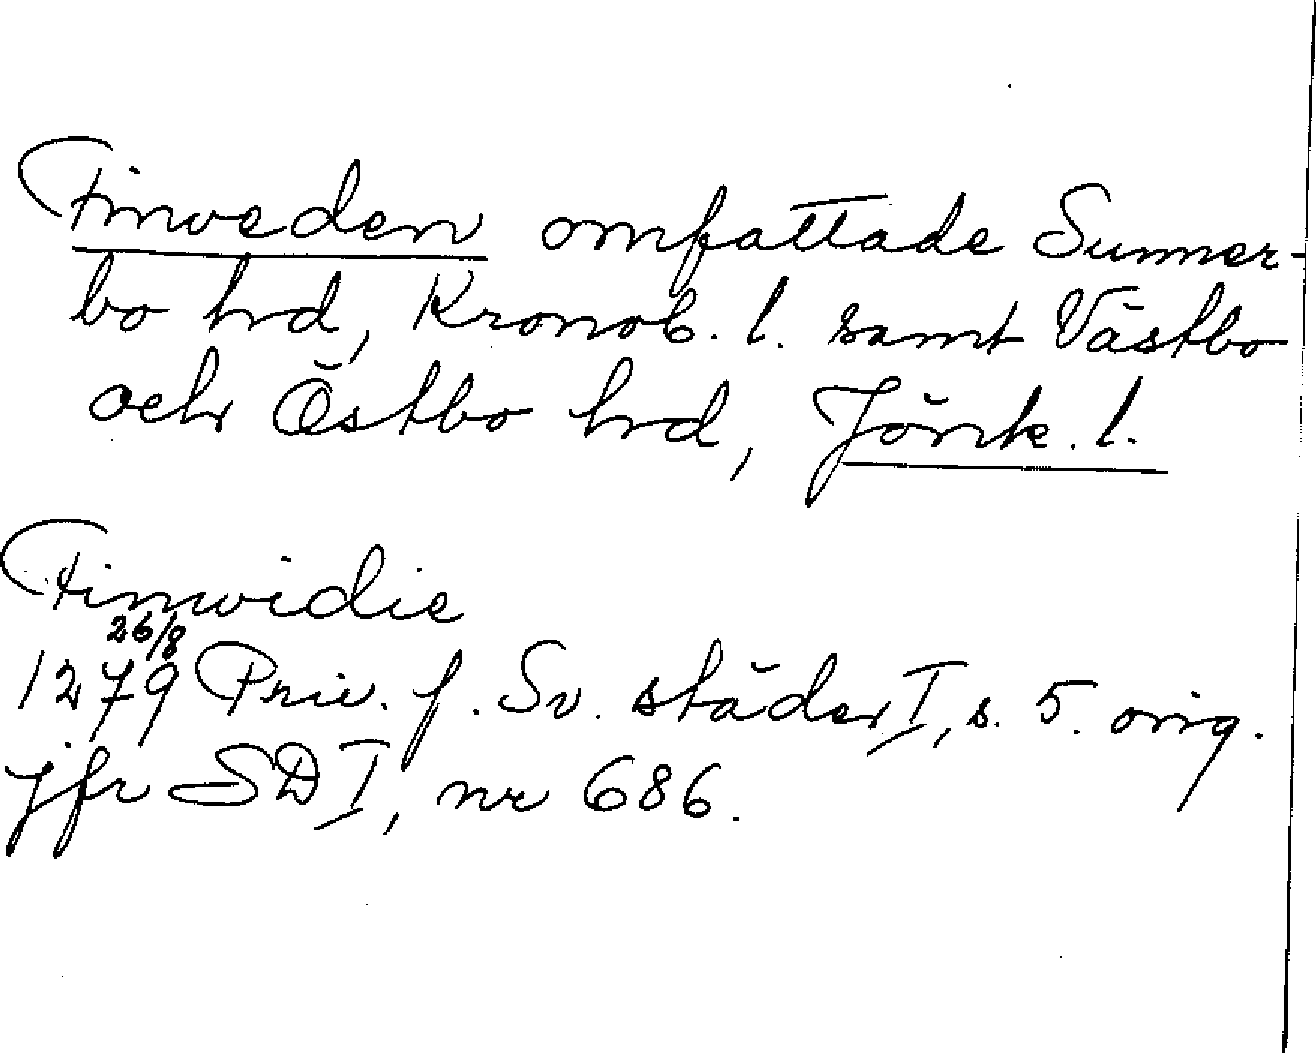 Finveden omfattade Sunner-
bo hrd, Kronob. l. samt Västbo
och Östbo hrd, Jönk. l.
Finwidie
26/8
1279 Priv. f. Sv. städer I, s. 5. orig.
jfr SD I, nr 686.